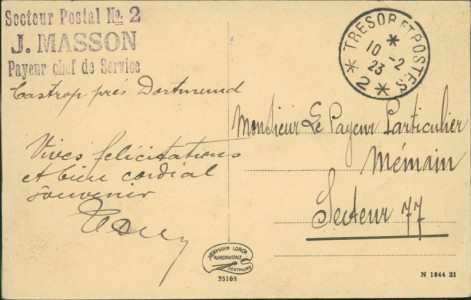 Secteur Postal No. 2
J. MASSON
Payeur chef de Service
Castrop près Dortmund
Vives félicitations
et bien cordial
souvenir
TRESOR ET POSTES
10-2
23
* 2 *
Monsieur Le Payeur Particulier
Mémain
Secteur 77
HERMANN LORCH
KUNSTANSTALT
DORTMUND
35165
N 1844 21